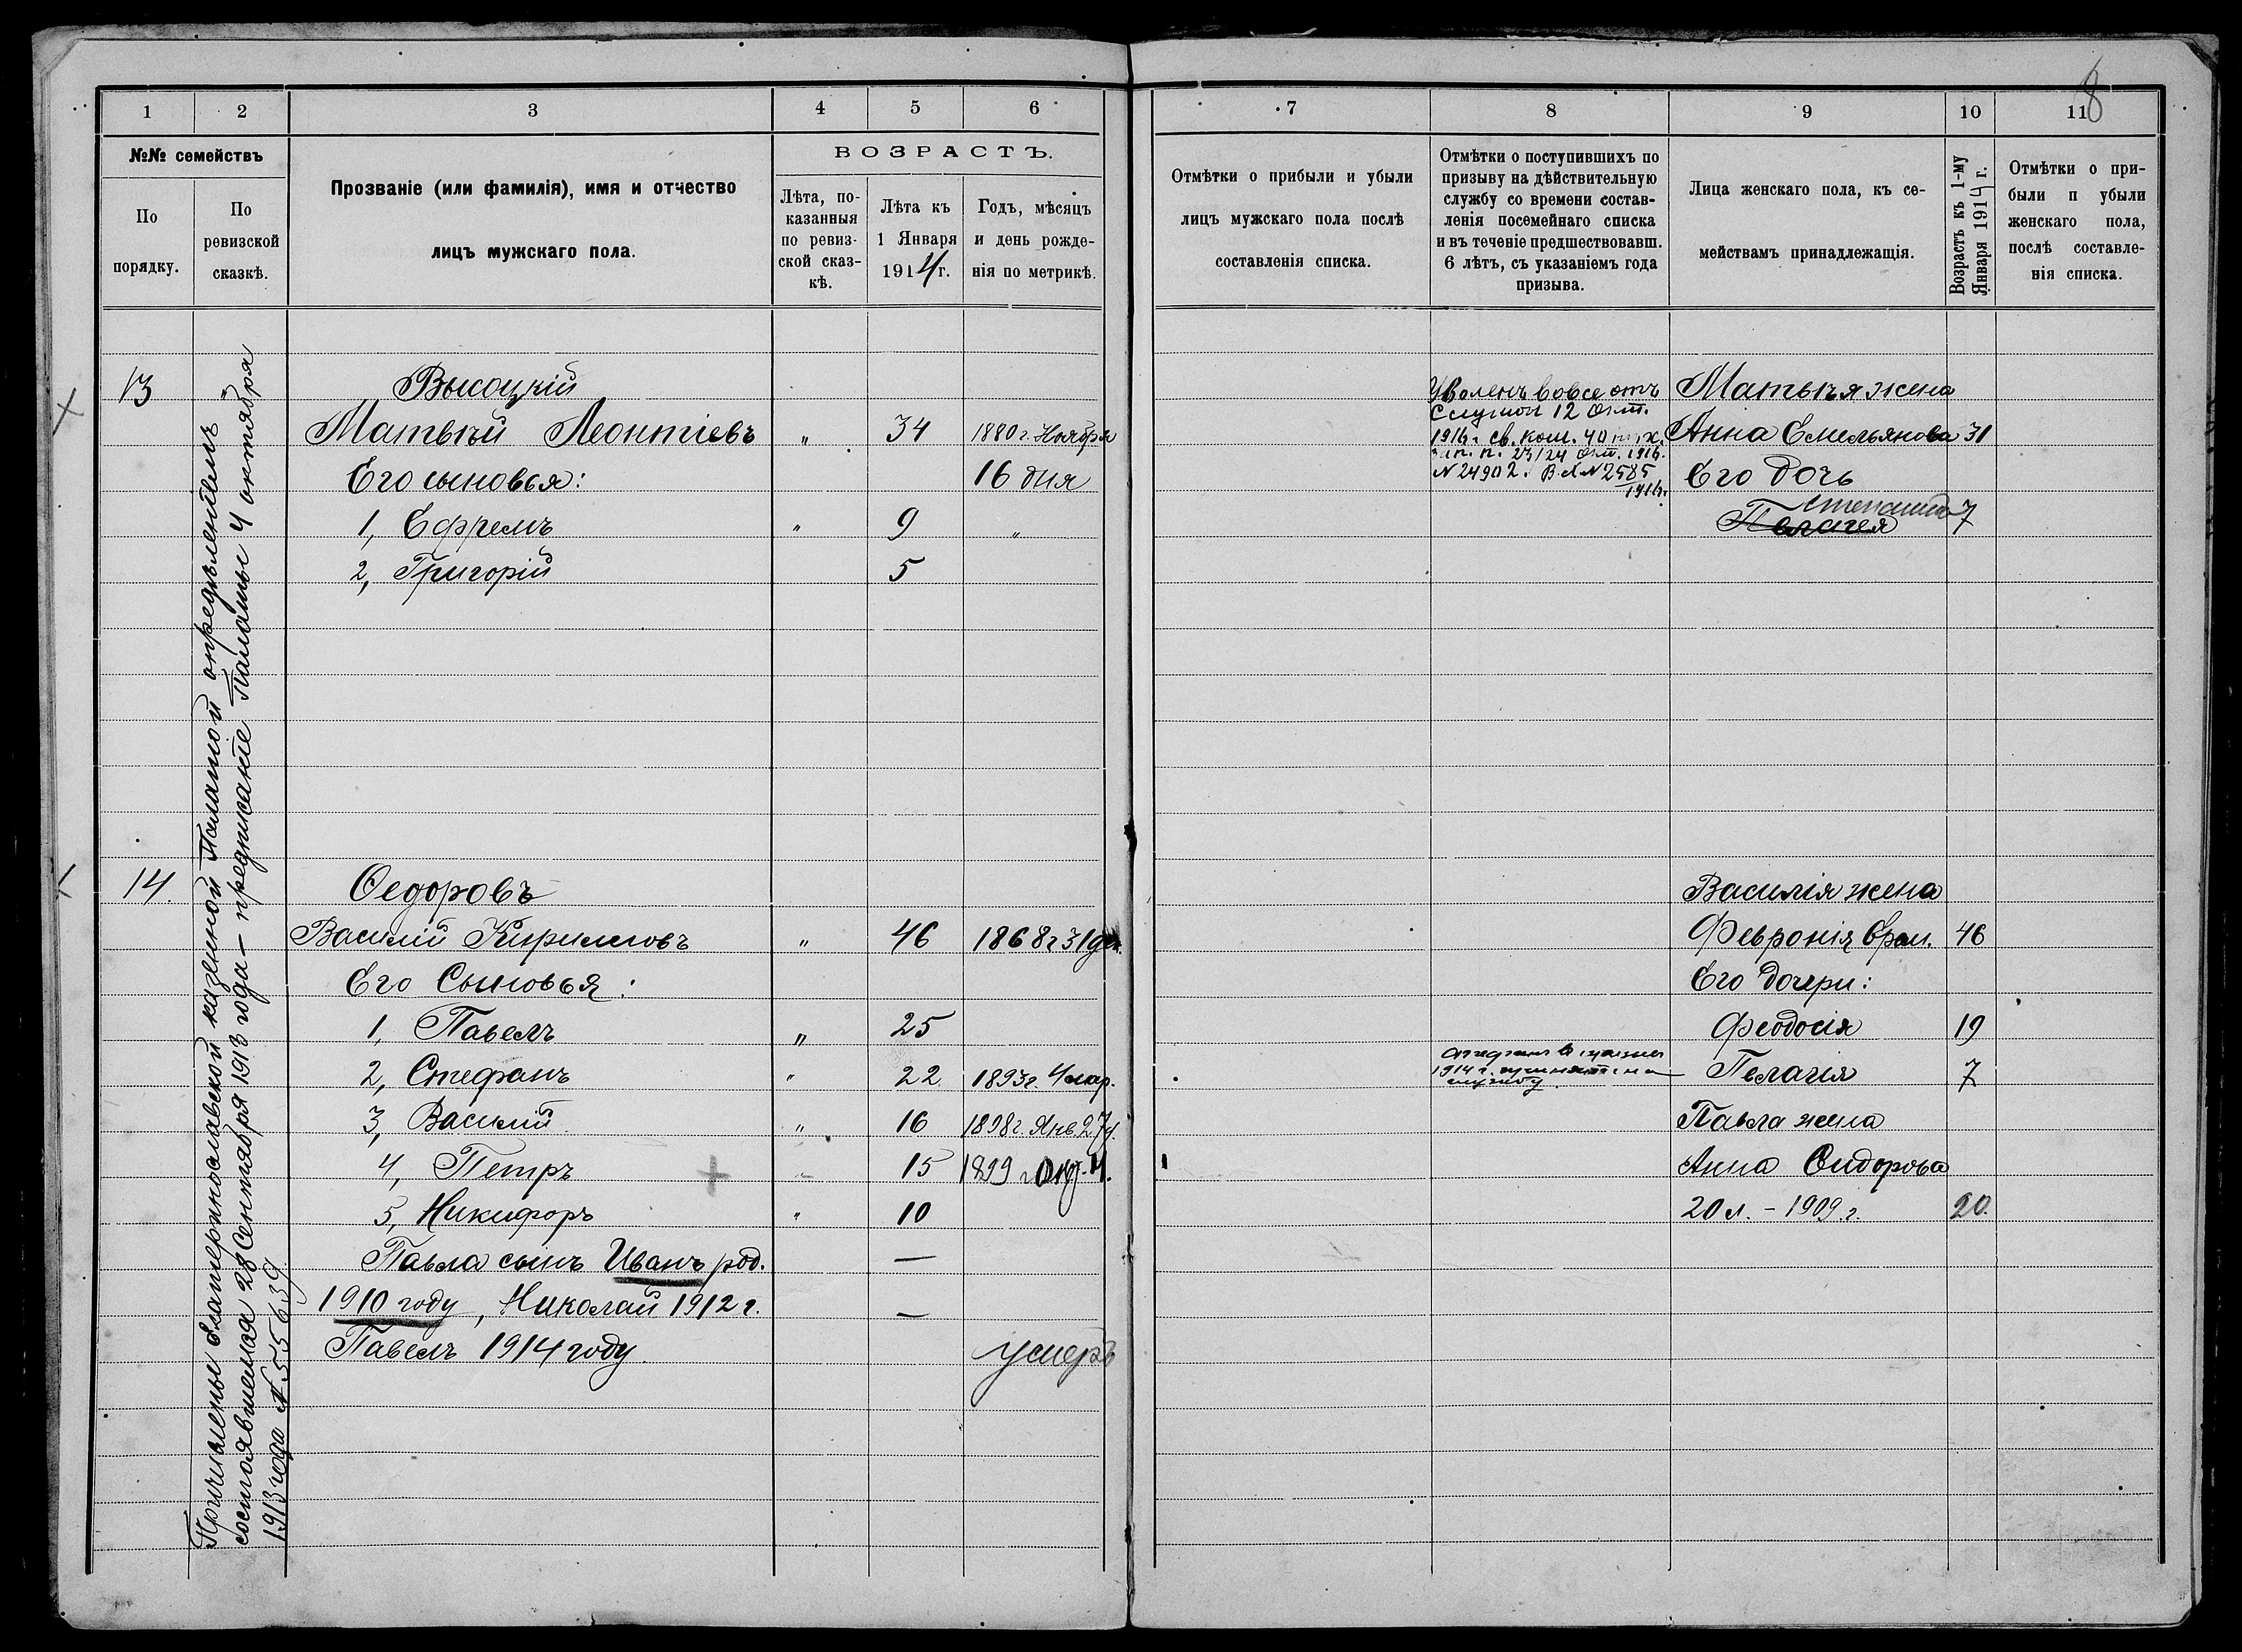 8
1 2 3 4 5 6
№№ семействъ
По порядку.
По ревизской сказкѣ.
Прозваніе (или фамилія), имя и отчество
лицъ мужскаго пола.
ВОЗРАСТЪ.
Лѣта, по-
казанныя
по ревиз-
ской сказ-
кѣ.
Лѣта къ
1 Января
1914 г.
Годъ, мѣсяцъ
и день рожде-
нія по метрикѣ.
7 8 9 10 11
Отмѣтки о прибыли и убыли
лицъ мужскаго пола послѣ
составленія списка.
Отмѣтки о поступившихъ по
призыву на дѣйствительную
службу со времени состав-
ленія посемейнаго списка
и въ теченіе предшествовавш.
6 лѣтъ, съ указаніемъ года
призыва.
Лица женскаго пола, къ се-
мействамъ принадлежащія.
Возрастъ къ 1-му
Января 1914 г.
Отмѣтки о при-
были п убыли
женскаго пола,
послѣ составле-
нія списка.
Причислены Екатеринославской казенной Палатой опредѣленіемъ
состоявшемся 28 Сентября 1913 года — предписаніе Палаты 4 октября
1913 года № 55639
13 Высоцкій
Матвѣй Леонтіевъ " 34 1880 г. Ноября
Его сыновья: 16 дня
1, Ефремъ " 9 "
2, Григорій 5
Уволенъ вовсе отъ
службы 12 окт.
1916 г. св. ком.
23/24 окт. 1916.
N 24902. В.х. N 2585
1916 г.
Матвѣя жена
Анна Емельянова 31
Его дочь
Степанида
Пелагея 7
14. Ѳедоровъ
Василій Кириловъ " 46 1868 г 31 де.
Его Сыновья:
1, Павелъ " 25
2, Стефанъ " 22 1893 г. 4 мар.
3, Василій " 16 1898 г. Янв 27 д.
4, Петръ 15 1899 г
5, Никифоръ " 10
Павла сынъ Иванъ род. —
1910 году, Николай 1912 г. —
Павелъ 1914 году. умеръ
1914 г. принятъ на
службу.
Василія жена
Февронія 46
Его дочери:
Феодосія 19
Пелагія 7
Павла жена
Анна Сидорова
20 л. - 1909 г. 20.